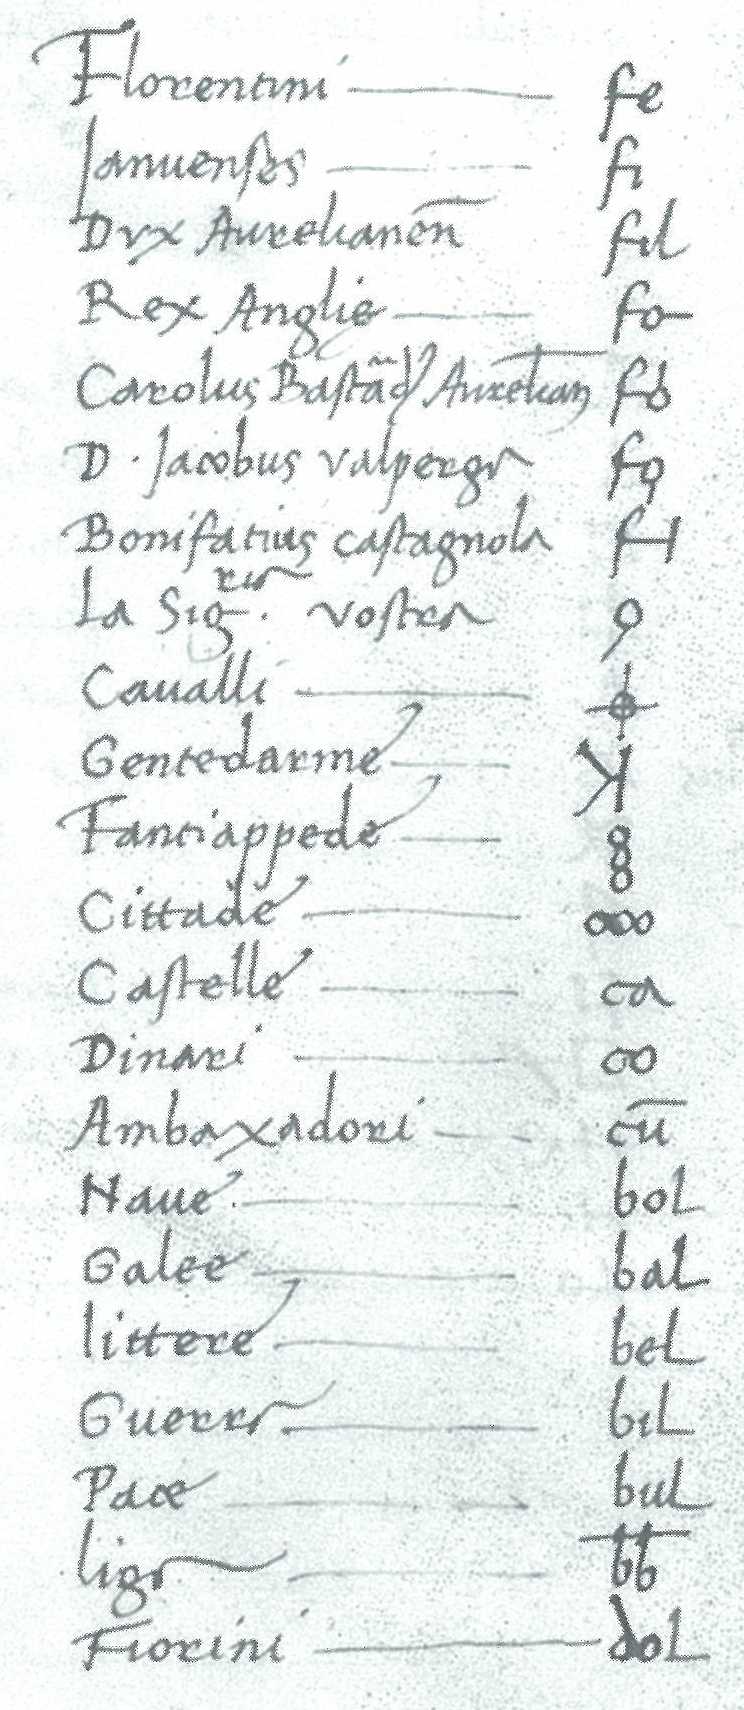 Florentini fe
Januenses fi
Dux Aurelianen̄ ful
Rex Anglie fo
Carolus Bastãd Aurelian fb
D. Jacobus valperga fq
Bonifatius castagnola
La Sig.ria vostra 9
Caualli
Gentedarme
Fantiappede 8
Cittade
Castelle ca
Dinari co
Ambaxadori cū
Naue bol
Galee bal
littere bel
Guerra bil
Pace bul
liga bb
Fiorini dol